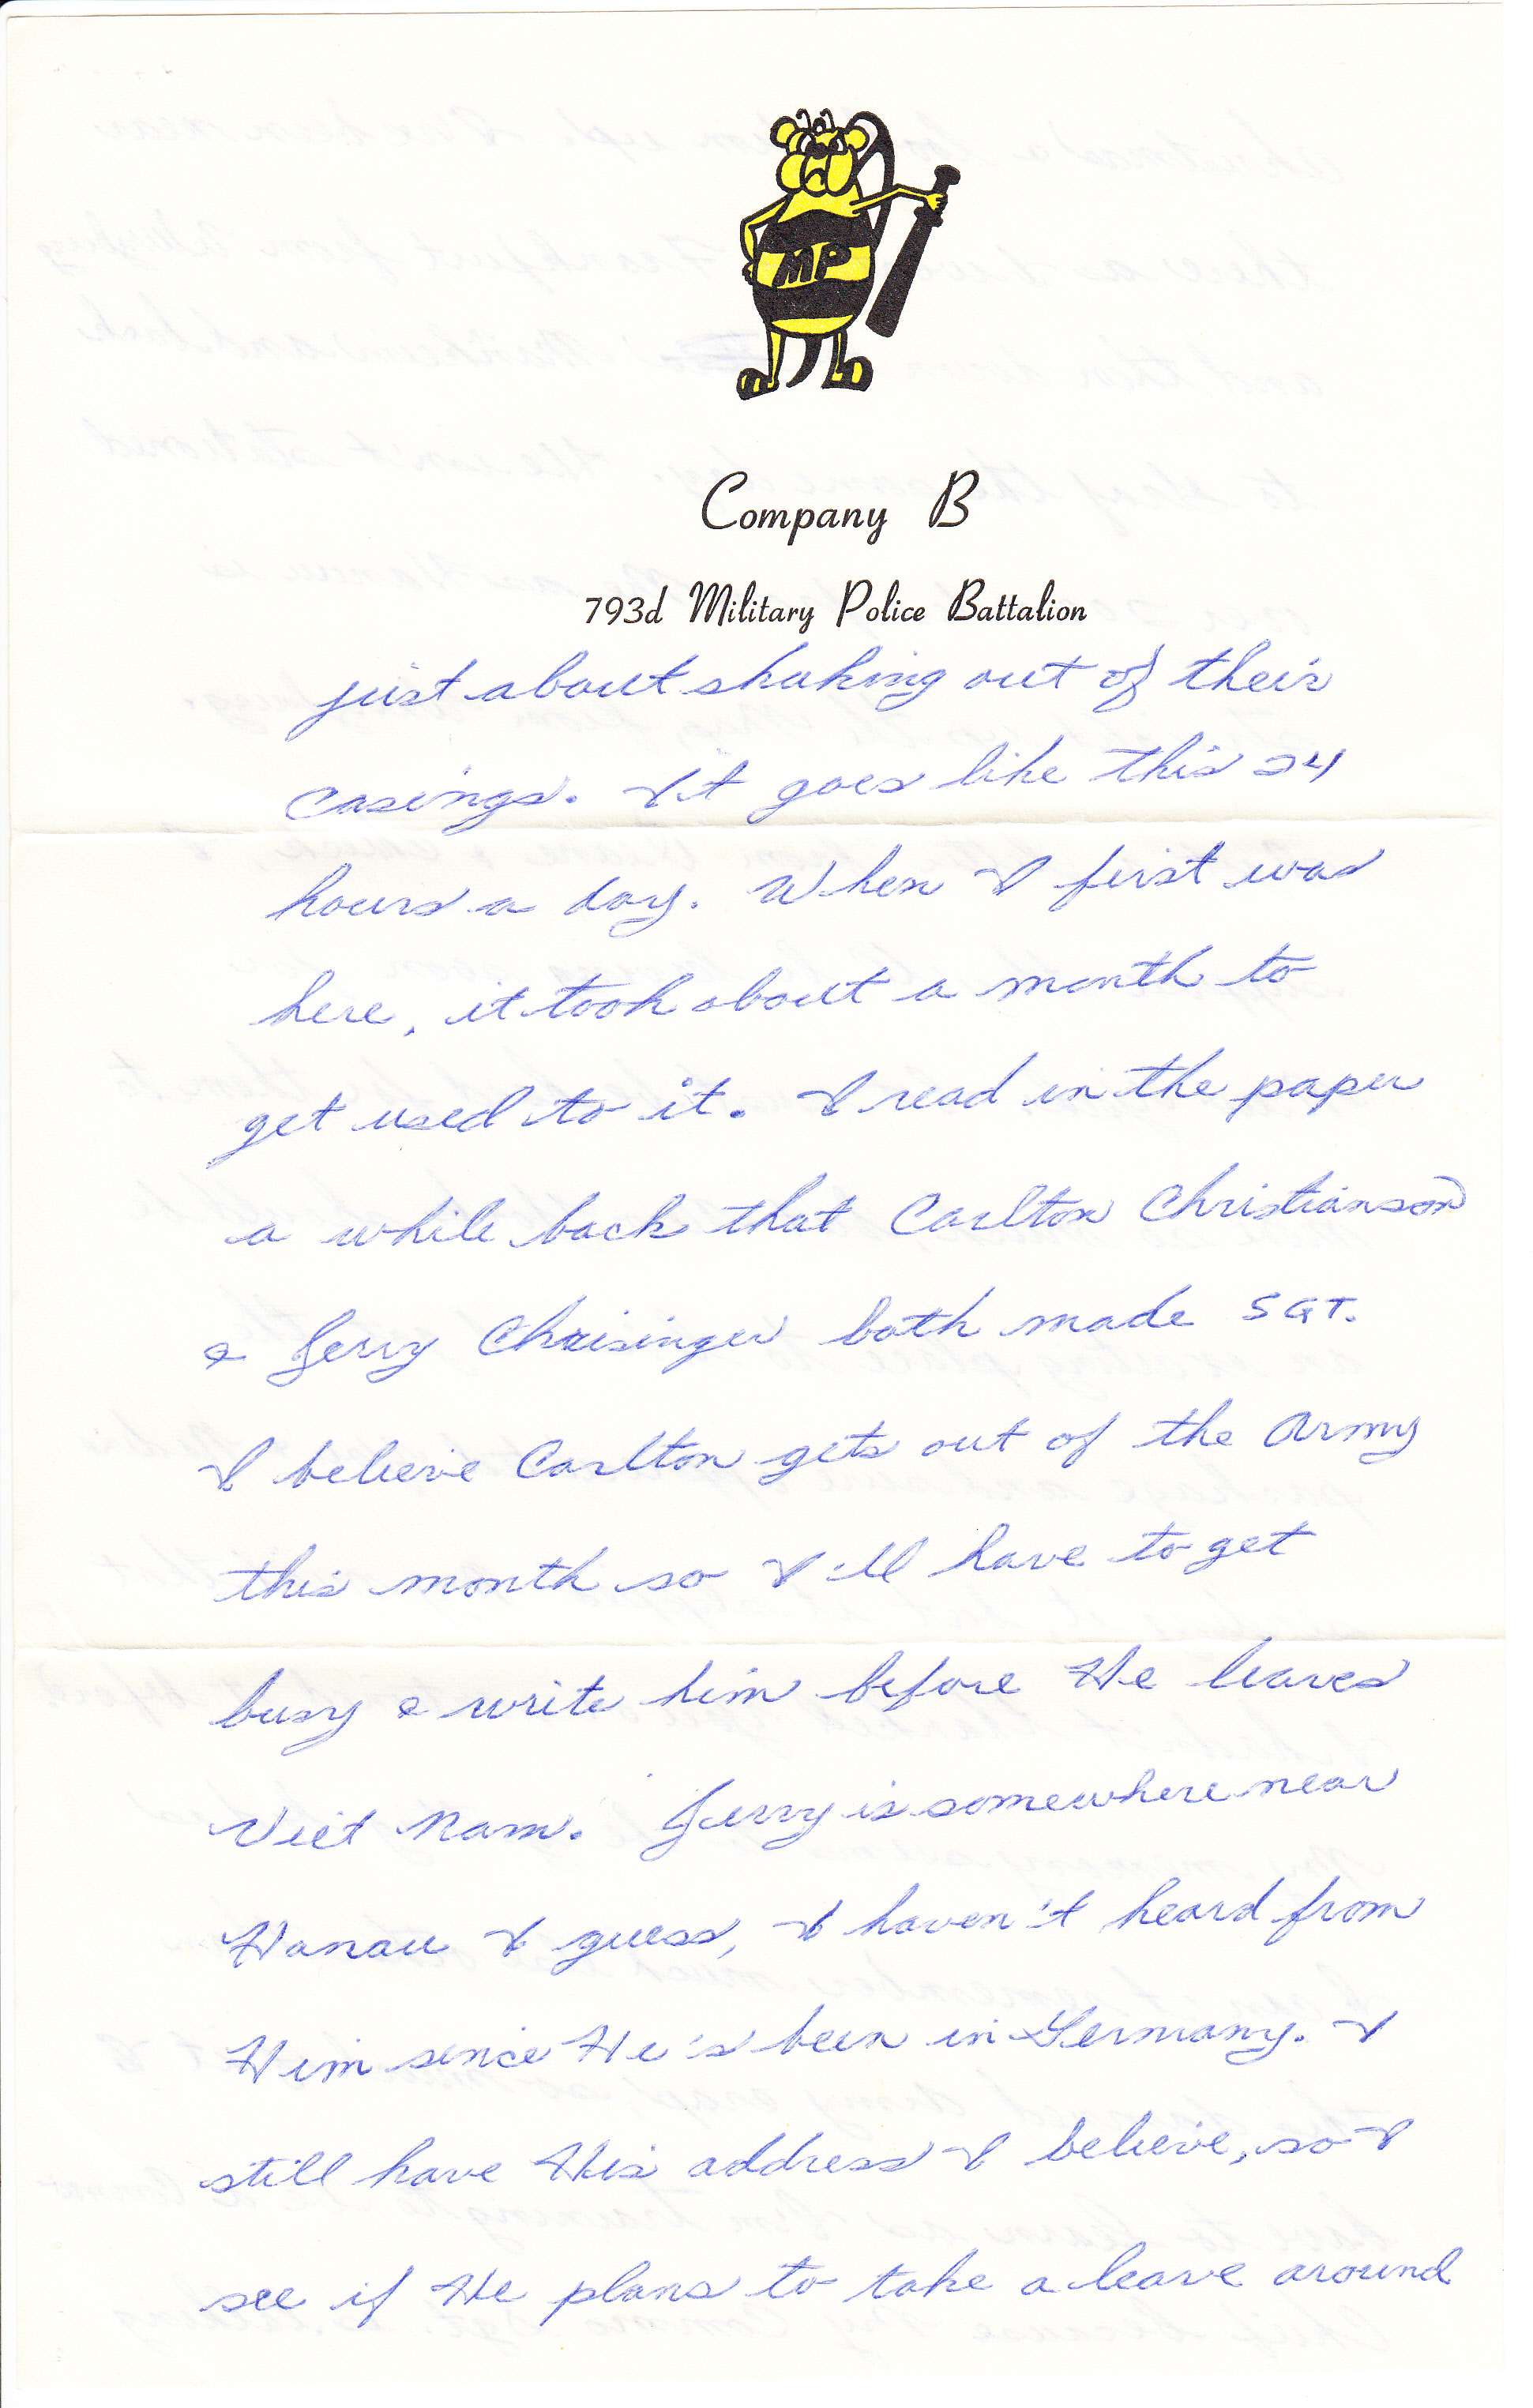 MP
Company B
793d Military Police Battalion
just about shaking out of their
casings. It goes like this 24
hours a day. When I first was
here, it took about a month to
get used to it. I read in the paper
a while back that Carlton Christianson
& Jerry Chrisinger both made SGT.
I believe Carlton gets out of the Army
this month so I'll have to get
busy & write him before He leaves
Viet Nam. Jerry is somewhere near
Hanau I guess, I haven't heard from
Him sence He's been in Germany. I
still have His address I believe, so I
see if He plans to take a leave around